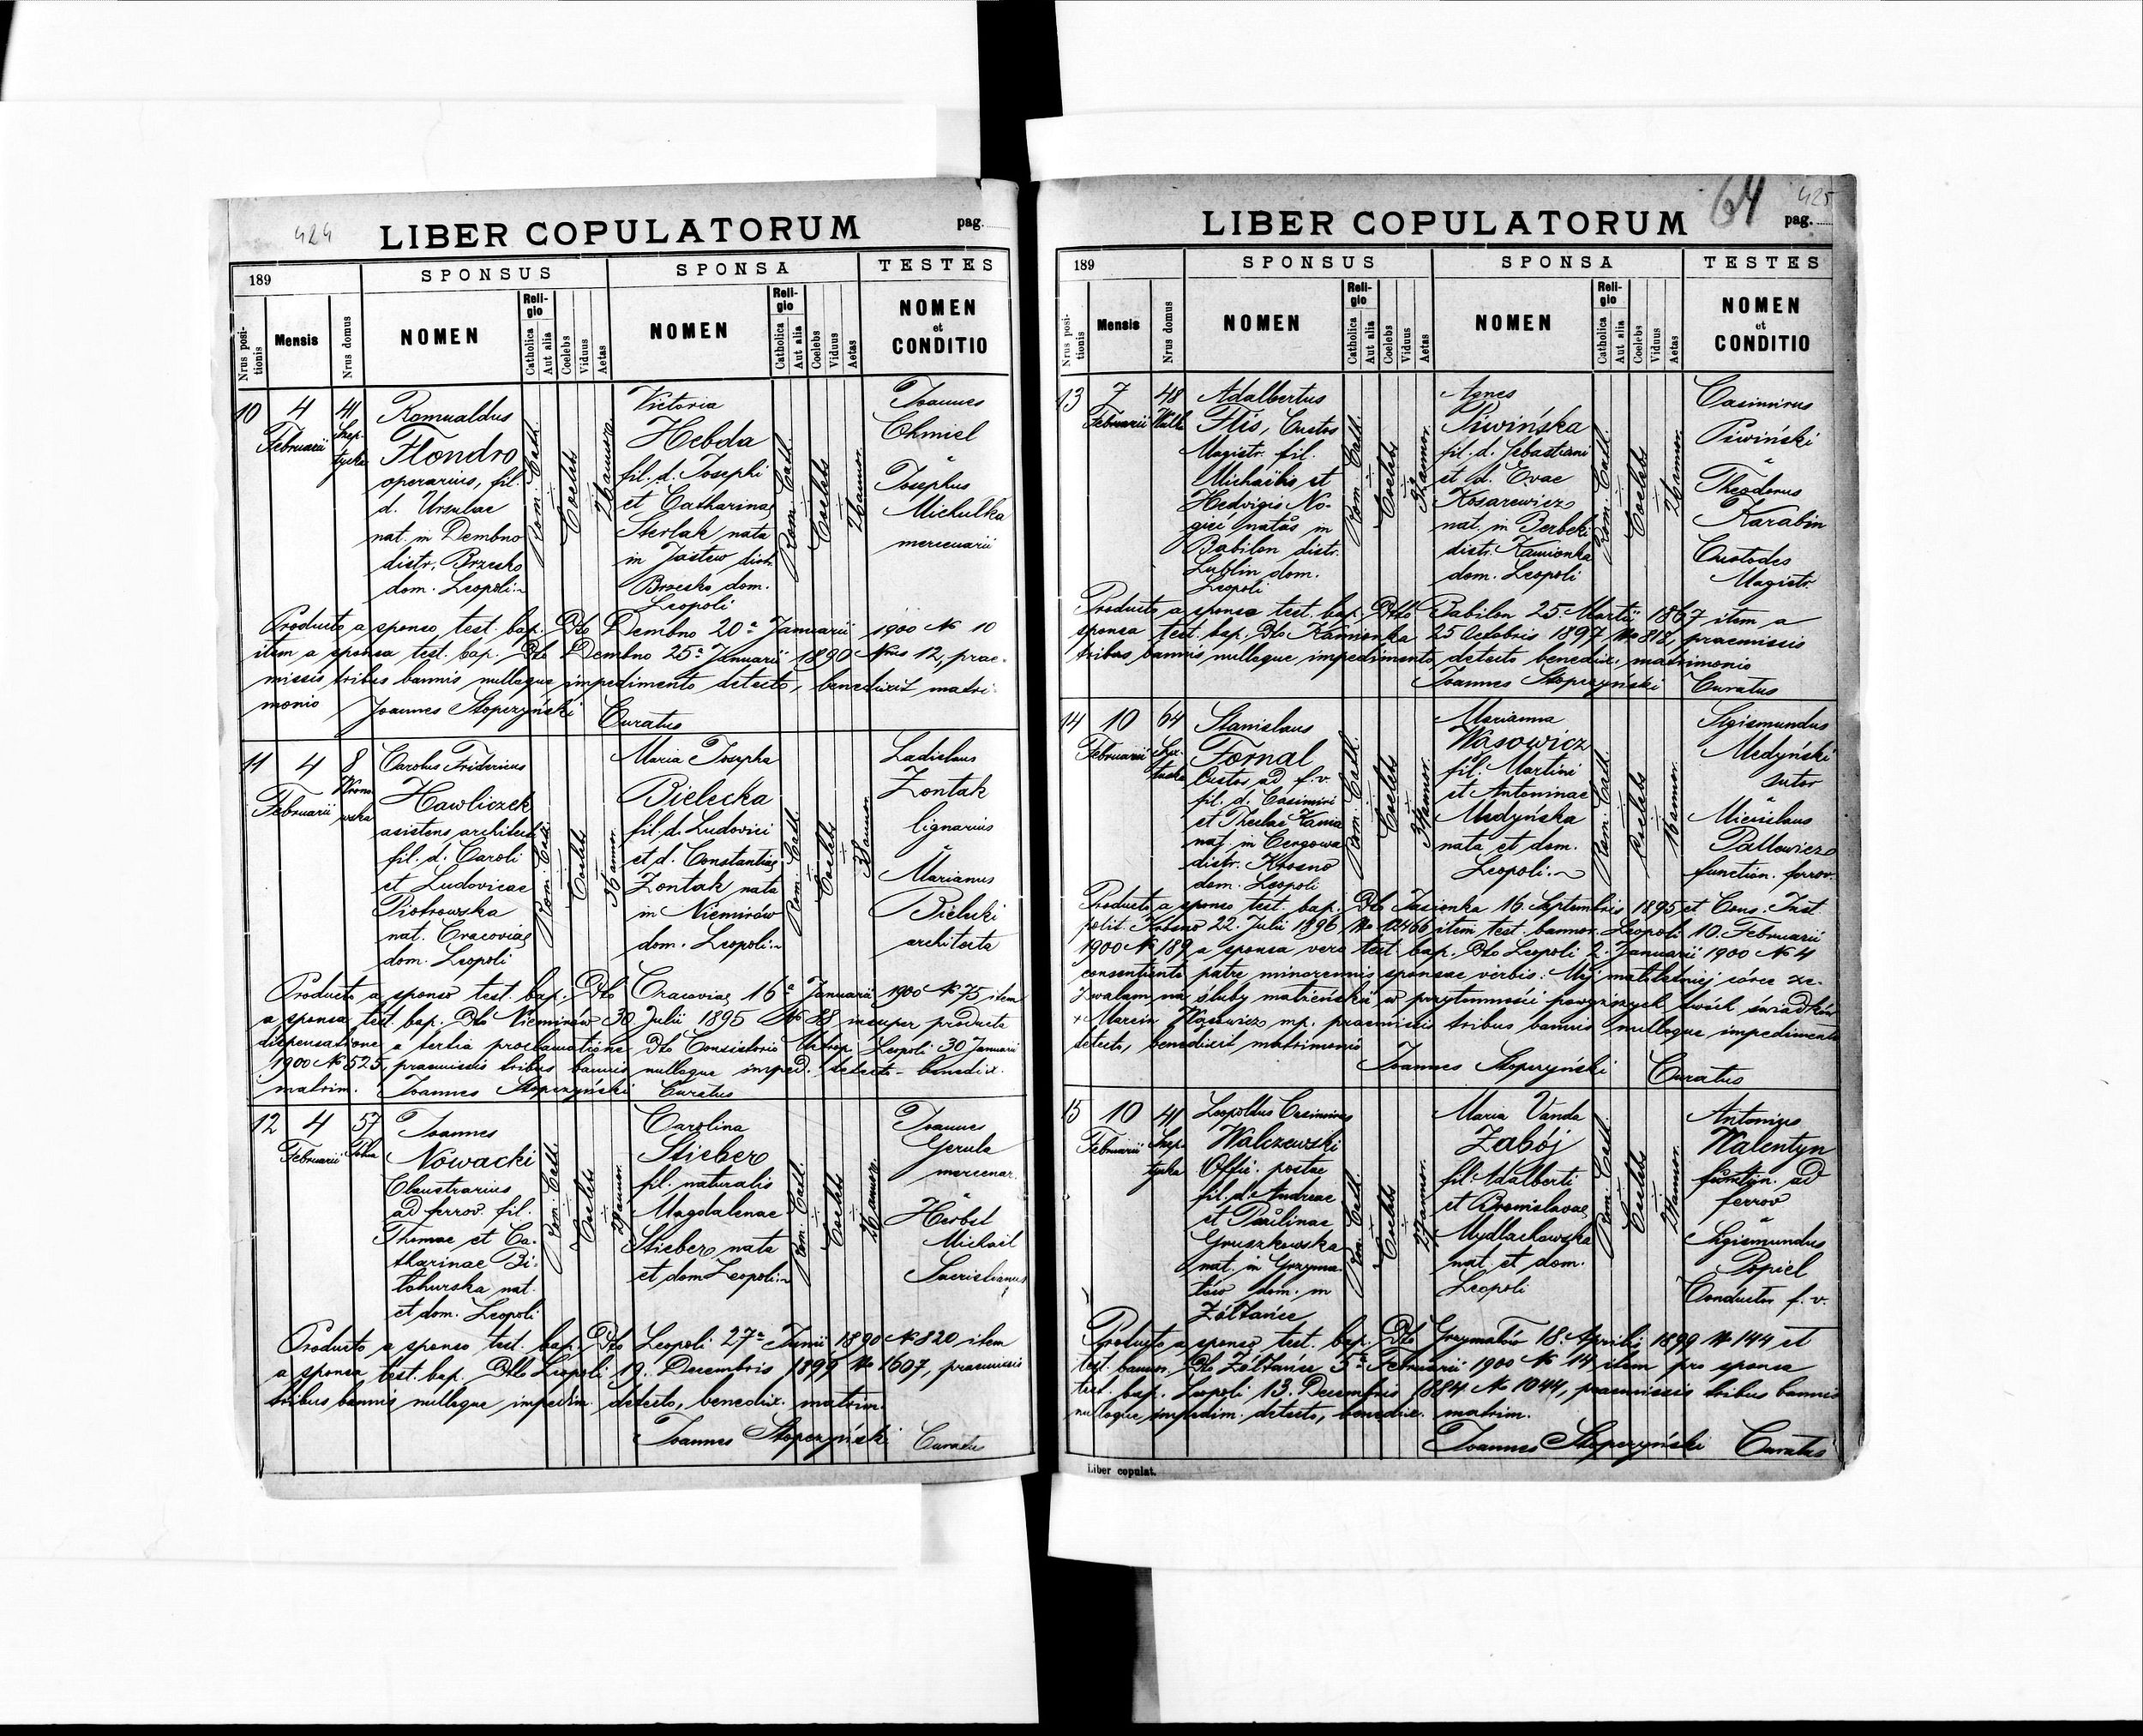 424
LIBER COPULATORUM
pag.
189
SPONSUS
SPONSA
TESTES
Nrus positionis
Mensis
Nrus domus
NOMEN
Religio
Catholica
Aut alia
Coelebs
Viduus
Aetas
NOMEN
Religio
Catholica
Aut alia
Coelebs
Viduus
Aetas
NOMEN
et
CONDITIO
10
4
Februarii
41
Szep-
tycka
Romualdus
Flondro
operarius, fil.
d. Ursulae
nat. in Dembno
distr. Brzesko
dom. Leopoli
Rom. Cath.
Coelebs
26 annor.
Victoria
Hebda
fil. d. Josephi
et Catharinae
Sterlak nata
in Jastew distr.
Brzesko dom.
Leopoli
Rom. Cath.
Coelebs
26 annor.
Joannes
Chmiel
Josephus
Michulka
mercenarii
Producto a sponso test. bap. Dto Dembno 20a Januarii 1900 No 10
item a sponsa test. bap. Dto Dembno 25a Januarii 1890 Nrus 12, prae-
missis tribus bannis nulloque impedimento detecto, benedixit matri-
monio
Joannes Stopczyński Curatus
11
4
Februarii
8
Krono-
wska
Carolus Fridericus
Hawliczek
asistens architect.
fil. d. Caroli
et Ludovicae
Piotrowska
nat. Cracoviae
dom. Leopoli
Rom. Cath.
Coelebs
annor.
Maria Josepha
Bielecka
fil. d. Ludovici
et d. Constantiae
Zontak nata
in Niemirów
dom. Leopoli
Rom. Cath.
Coelebs
annor.
Ladislaus
Zontak
lignarius
Marianus
Bielecki
architecta
Producto a sponso test. bap. Dto Cracoviae 16a Januarii 1900 No 75 item
a sponsa test. bap. Dto Niemirów 30 Julii 1895 No 88 insuper producta
dispensatione a tertia proclamatione Dto Consistorio Metrop. Leopoli 30 Januarii
1900 No 525, praemissis tribus bannis nulloque imped. detecto - benedix.
matrim. Joannes Stopczyński Curatus
12
4
Februarii
57
Joannes
Nowacki
Claustrarius
ad ferrov. fil.
Thomae et Ca-
tharinae Bi-
lohurska nat.
et dom. Leopoli
Rom. Cath.
Coelebs
29 annor.
Carolina
Stieber
fil. naturalis
Magdalenae
Stieber nata
et dom Leopoli
Rom. Cath.
Coelebs
26 annor.
Joannes
Gerula
mercenar.
Herbst
Michael
Sacristianus
Producto a sponso test. bap. Dto Leopoli 27a Junii 1890 No 820 item
a sponsa test. bap. Dto Leopoli 19. Decembris 1899 No 1607, praemissis
tribus bannis nulloque impedim. detecto, benedix. matrim.
Joannes Stopczyński Curatus
64
425
LIBER COPULATORUM
pag.
189
SPONSUS
SPONSA
TESTES
Nrus positionis
Mensis
Nrus domus
NOMEN
Religio
Catholica
Aut alia
Coelebs
Viduus
Aetas
NOMEN
Religio
Catholica
Aut alia
Coelebs
Viduus
Aetas
NOMEN
et
CONDITIO
13
7
Februarii
48
Adalbertus
Flis, Custos
Magistr. fil.
Michaëlis et
Hedvigis No-
gieć natus in
Babilon distr.
Lublin dom.
Leopoli
Rom. Cath.
Coelebs
32 annor.
Agnes
Piwińska
fil. d. Sebastiani
et d. Evae
Kosarewicz
nat. in Berbeki
distr. Kamionka
dom. Leopoli
Rom. Cath.
Coelebs
26 annor.
Casimirus
Piwiński
Theodorus
Karabin
Custodes
Magistr.
Producto a sponso test. bap. Dtto Babilon 25. Martii 1867 item a
sponsa test. bap. Dto Kamionka 25 Octobris 1897 No 818, praemissis
tribus bannis nulloque impedimento detecto benedix. matrimonio
Joannes Stopczyński Curatus
14
10
Februarii
64
Stanislaus
Fornal
Custos ad f. v.
fil. d. Casimiri
et Theclae Kania
nat. in Cergowa
distr. Krosno
dom. Leopoli
Rom. Cath.
Coelebs
annor.
Marianna
Wąsowicz
fil. Martini
et Antoninae
Medyńska
nata et dom.
Leopoli
Rom. Cath.
Coelebs
16 annor.
Sigismundus
Medyński
sutor
Miecislaus
Pallewicz
function. ferrov.
Producto a sponso test. bap. Dto Jasionka 16. Septembris 1895 et Cons. Inst.
polit. Krosno 22. Julii 1896 No 12466 item test. bannor. Leopoli 10. Februarii
1900 No 189 a sponsa vero test. bap. Dto Leopoli 2. Januarii 1900 No 4
consentienti patre minorennis sponsae verbis: Mej małoletniej córce ze-
zwalam na śluby małżeńskie w przytomności powyższych dwóch świadków
+ Marcin Wąsowicz mp. praemissis tribus bannis nulloque impedimento
detecto, benedixit matrimonio
Joannes Stopczyński Curatus
15
10
Februarii
41
Szep-
tycka
Leopoldus Casimirus
Walczewski
Offic. postae
fil. d. Andreae
et Paulinae
Gruszkowska
nat. in Grzyma-
łów dom. in
Żółtańce
Rom. Cath.
Coelebs
27 annor.
Maria Vanda
Zabój
fil. Adalberti
et Bronislavae
Mydlachowska
nat. et dom.
Leopoli
Rom. Cath.
Coelebs
annor.
Antonius
Walentyn
ad
ferrov
Sigismundus
Popiel
Conductor f. v.
Producto a sponso test. bap. Dto Grzymałów 18. Aprilis 1899 No 144 et
test. bannor. Dto Żółtańce 5a Februarii 1900 No 14 item pro sponsa
test. bap. Leopoli 13. Decembris 1884 No 1044, praemissis tribus bannis
nulloque impedim. detecto, benedix. matrim.
Joannes Stopczyński Curatus
Liber copulat.